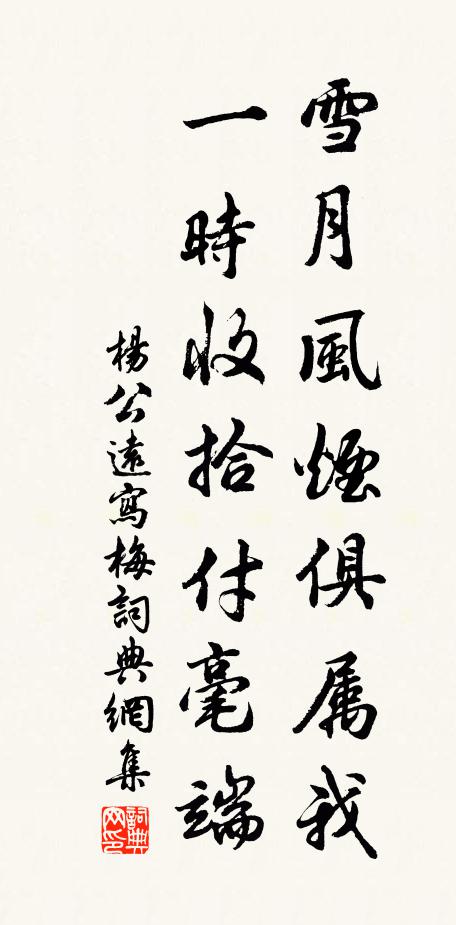 雪月風煙俱属我
一時收拾付毫端
楊公遠寫梅詞典網集
詞典网印